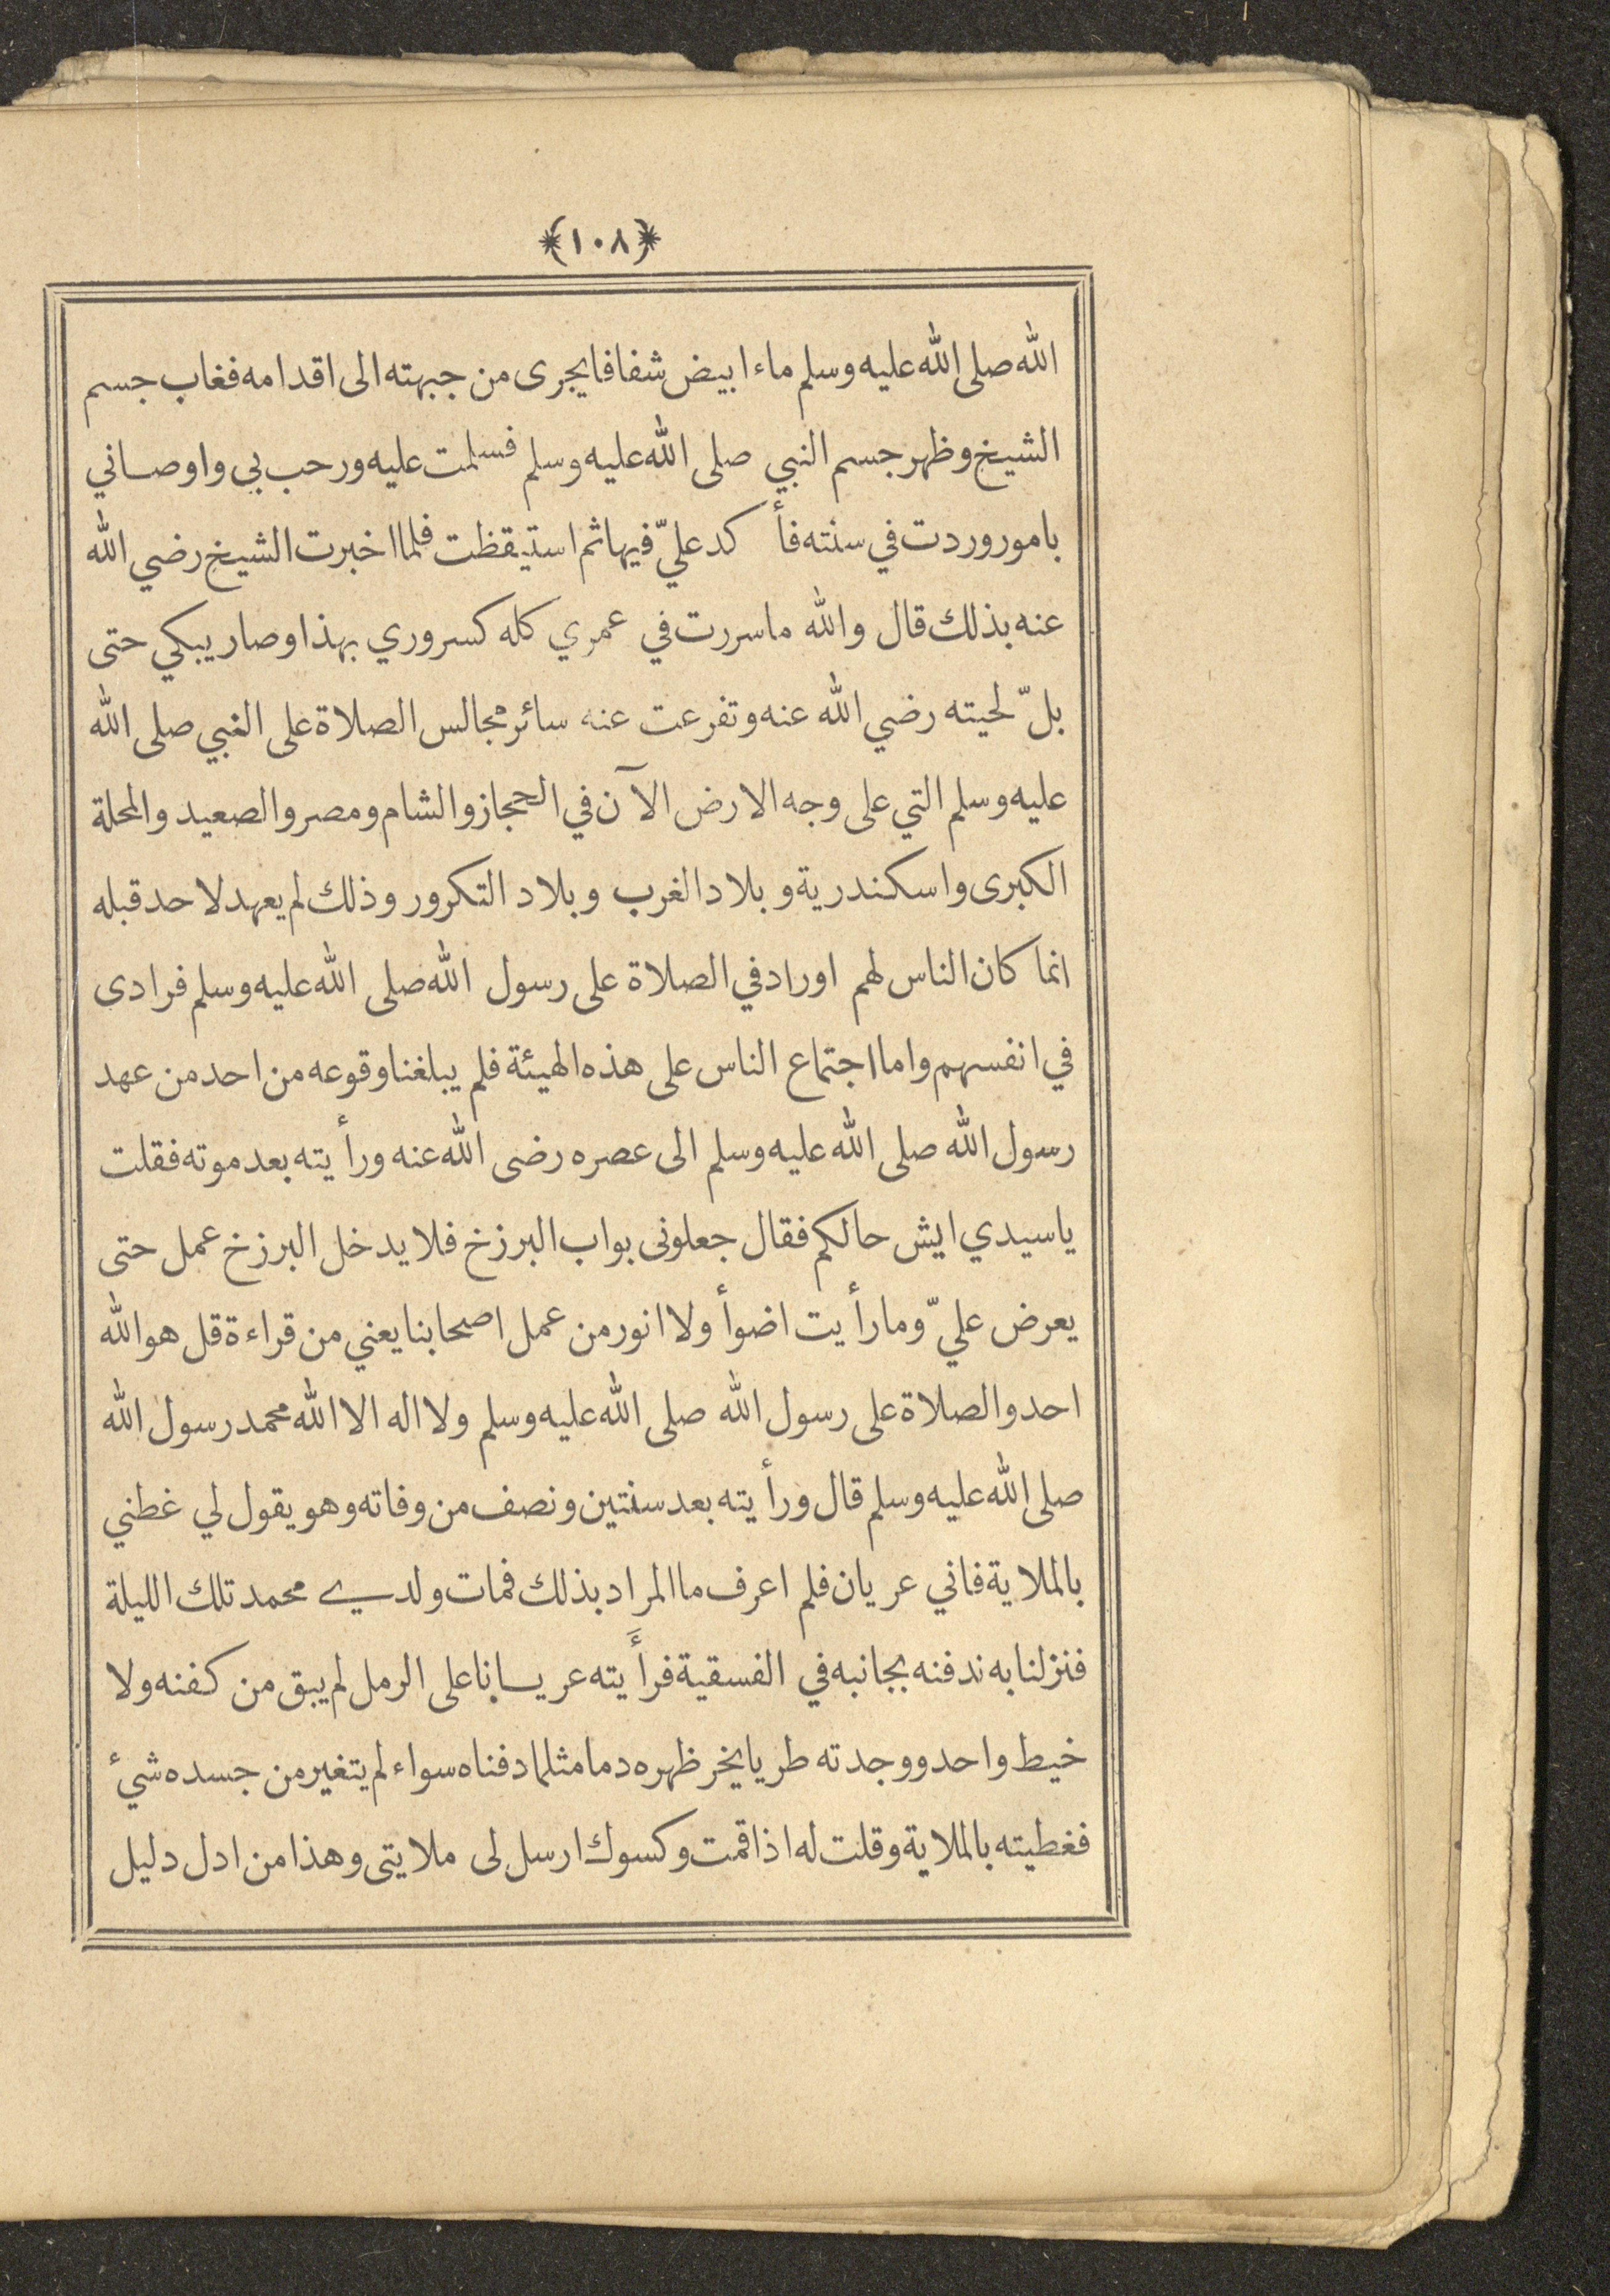 ﴿١٠٨﴾
الله صلى الله عليه وسلم ماء ابيض شفافا يجرى من جبهته الى اقدامه فغاب جسم
الشيخ وظهر جسم النبي صلى الله عليه وسلم فسلمت عليه ورحب بي واوصاني
بامور وردت في سنته فأكد عليّ فيها ثم استيقظت فلما اخبرت الشيخ رضي الله
عنه بذلك قال والله ما سررت في عمري كله كسروري بهذا وصار يبكي حتى
بلّ لحيته رضي الله عنه وتفرعت عنه سائر مجالس الصلاة على النبي صلى الله
عليه وسلم التي على وجه الارض الآن في الحجاز والشام ومصر والصعيد والمحلة
الكبرى واسكندرية وبلاد الغرب وبلاد التكرور وذلك لم يعهد لاحد قبله
انما كان الناس لهم اوراد في الصلاة على رسول الله صلى الله عليه وسلم فرادى
في انفسهم واما اجتماع الناس على هذه الهيئة فلم يبلغنا وقوعه من احد من عهد
رسول الله صلى الله عليه وسلم الى عصره رضى الله عنه ورأيته بعد موته فقلت
يا سيدي ايش حالكم فقال جعلونى بواب البرزخ فلا يدخل البرزخ عمل حتى
يعرض عليّ وما رأيت اضوأ ولا انور من عمل اصحابنا يعني من قراءة قل هو الله
احد والصلاة على رسول الله صلى الله عليه وسلم ولا اله الا الله محمد رسول الله
صلى الله عليه وسلم قال ورأيته بعد سنتين ونصف من وفاته وهو يقول لي غطني
بالملاية فاني عريان فلم اعرف ما المراد بذلك فمات ولدي محمد تلك الليلة
فنزلنا به ندفنه بجانبه في الفسقية فرأَيته عريانا على الرمل لم يبق من كفنه ولا
خيط واحد ووجدته طريا يخر ظهره دما مثلما دفناه سواء لم يتغير من جسده شيئ
فغطيته بالملاية وقلت له اذا قمت وكسوك ارسل لى ملايتى وهذا من ادل دليل